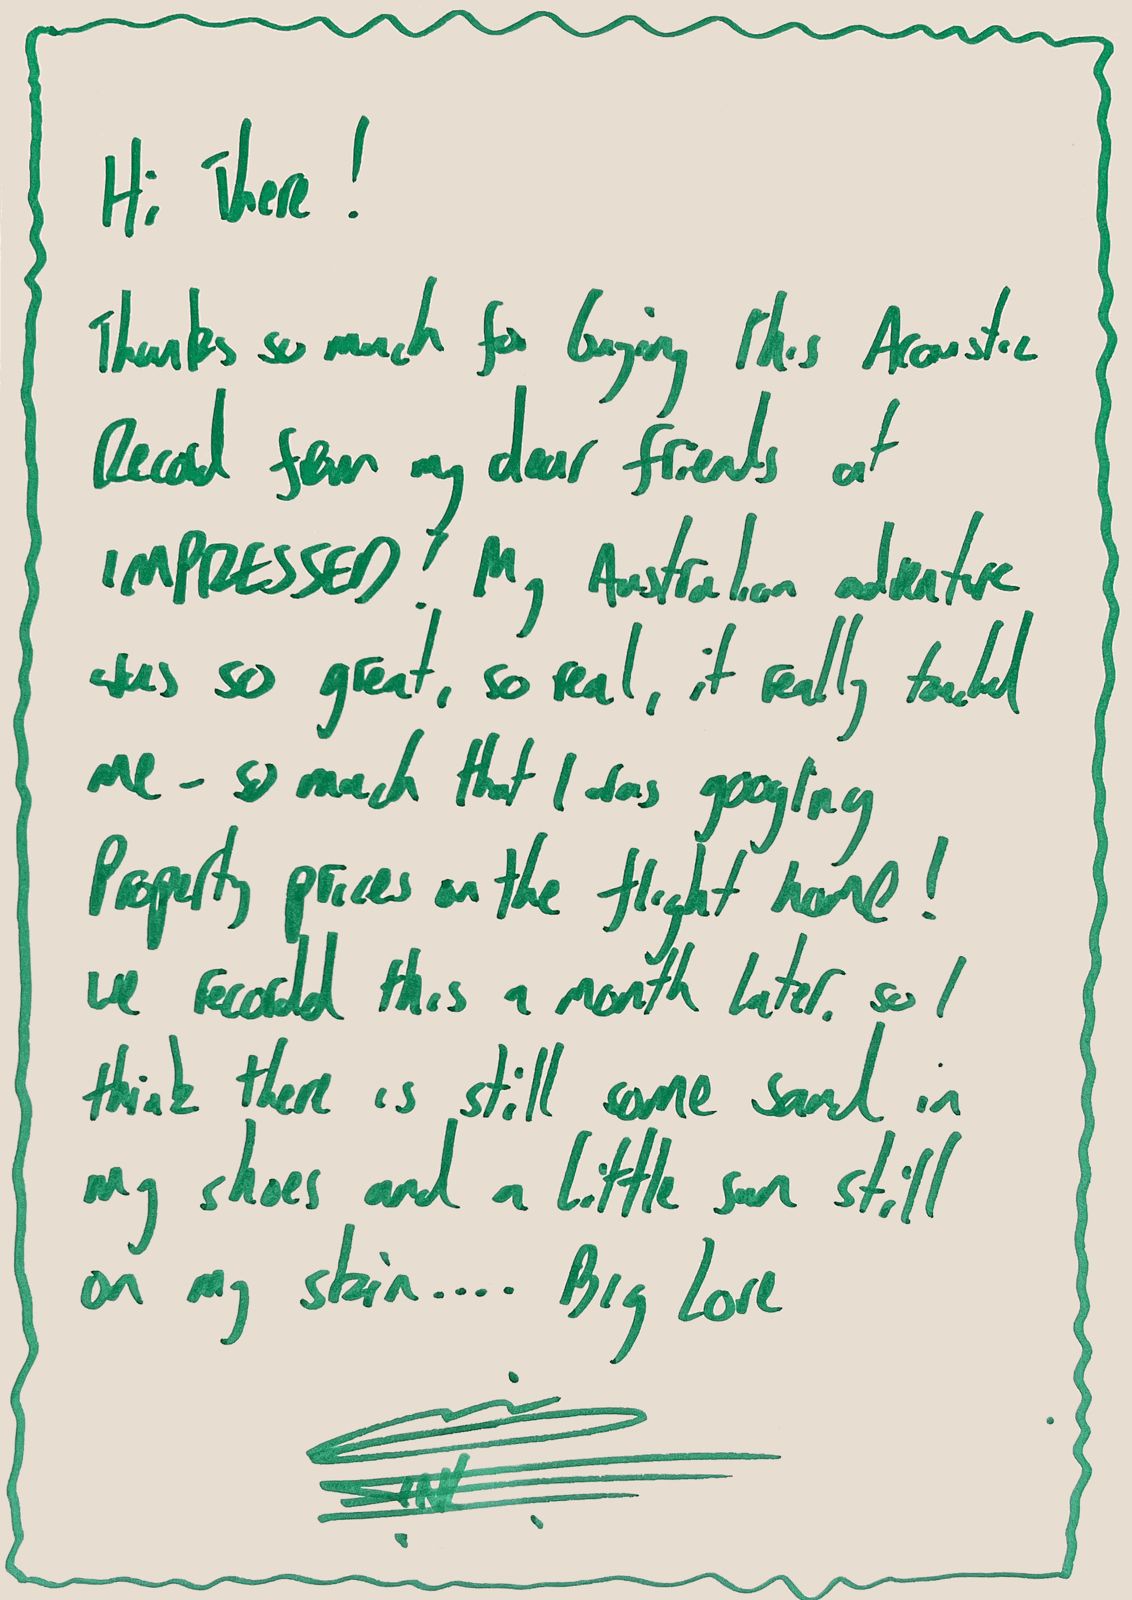 Hi There!
Thanks so much for buying this Acoustic
Record from my dear friends at
IMPRESSED! My Australian adventure
was so great, so real, it really touched
me - so much that I was googling
Property prices on the flight home!
we recorded this a month later. so I
think there is still some sand in
my shoes and a little sun still
on my skin.... Big Love